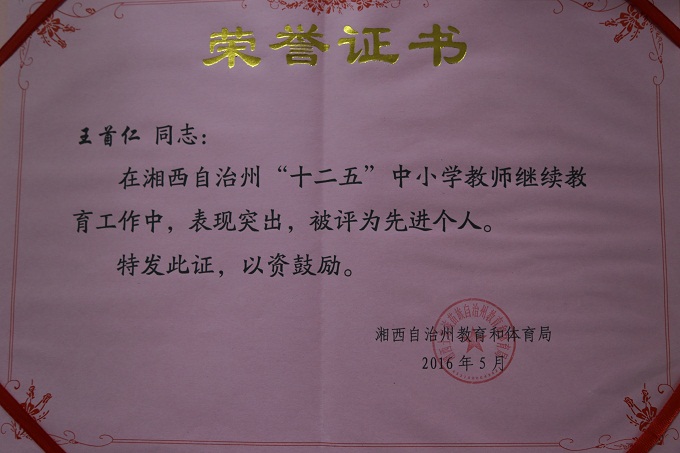 荣誉证书
王首仁 同志：
在湘西自治州“十二五”中小学教师继续教
育工作中，表现突出，被评为先进个人。
特发此证，以资鼓励。
湘西自治州教育和体育局
2016年5月